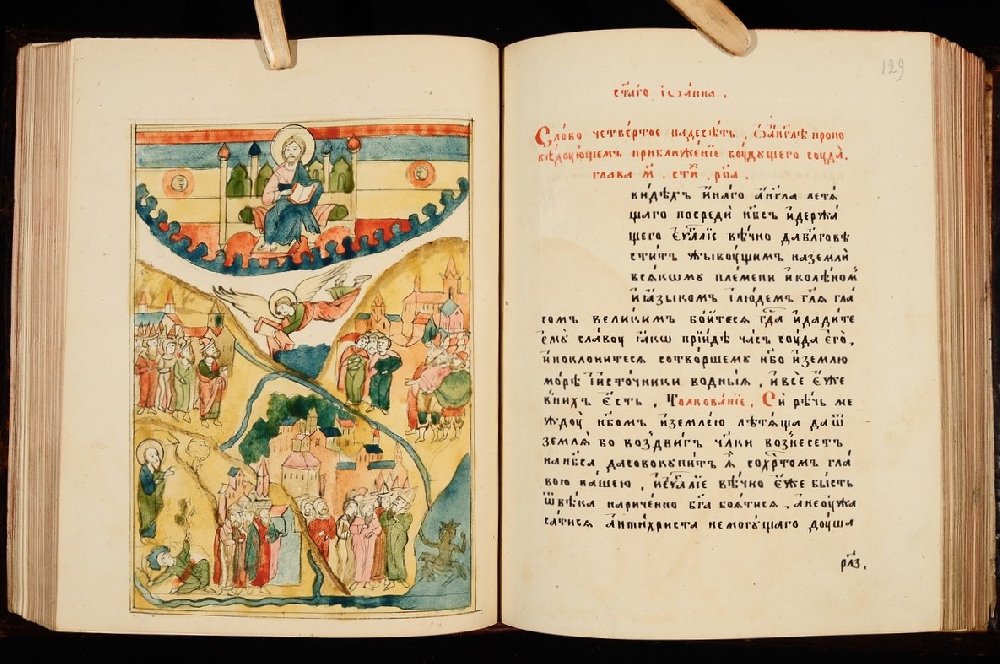 129
ст҃а́го іѡа́нна .
Сло́во четве́ртое надеся́тъ , ѡ а҆́нг҃лѣ пропо
вѣ́дѹющемъ приближе́нїе бѹ́дущего сѹда̀ .
глава м҃ . сті́й рп҃а .
ви́дѣхъ и҆на́го а҆́гг҃ла летѧ́
щаго посредѝ нб҃съ и҆ держа́
щего є҆ѵ҃лїе вѣ́чно да бл҃говѣ
сти́тъ живѹ́щимъ на землѝ
вся́кому пле́мени и҆ колѣ́ном̾
и҆ ѧ҆зы́комъ и҆ лю́демъ гл҃ѧ гла́
сомъ вели́кимъ бо́йтеся гд҃а и҆ дади́те
є҆мѹ̀ сла́вѹ ꙗ҆́кѡ прїи́де ча́съ сѹда̀ є҆го̀ ,
и҆ поклони́теся сотво́ршему нб҃о и҆ зе́млю
мо́рѣ и҆ и҆сто́чники во́дныѧ , и҆ всѐ є҆́же
в ни́хъ є҆́сть , Толкова́нїе , Сѝ рѣ́чь ме
ждѹ̀ нб҃омъ и҆ земле́ю лѣтѧ́ща да ѿ
земля̀ во воздви́гъ чл҃ки вознесе́тъ
на нб҃са
вою ва́шею , и҆ є҆ѵ҃лїе вѣ́чно є҆́же бы́сть
ѿ вѣ́ка нарече́нно бг҃а боя́тися , а не ѹ҆жа
са́тися а҆нтихри́ста не могу́щаго дѹша̀
рл҃з .